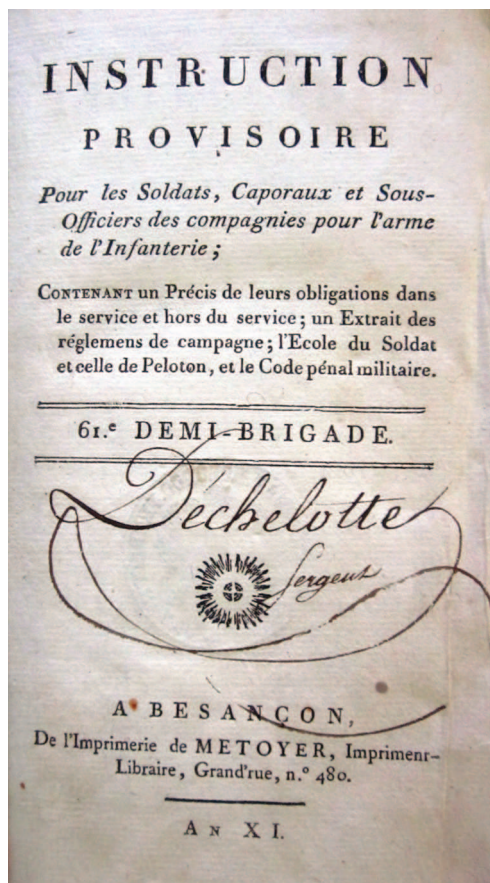 INSTRUCTION
PROVISOIRE
Pour les Soldats, Caporaux et Sous-
Officiers des compagnies pour l'arme
de l'Infanterie ;
CONTENANT un Précis de leurs obligations dans
le service et hors du service ; un Extrait des
réglemens de campagne ; l'Ecole du Soldat
et celle de Peloton, et le Code pénal militaire.
61.e DEMI-BRIGADE.
Dechelotte
Sergent
A BESANÇON,
De l'Imprimerie de METOYER, Imprimenr-
Libraire, Grand'rue, n.º 480.
AN XI.